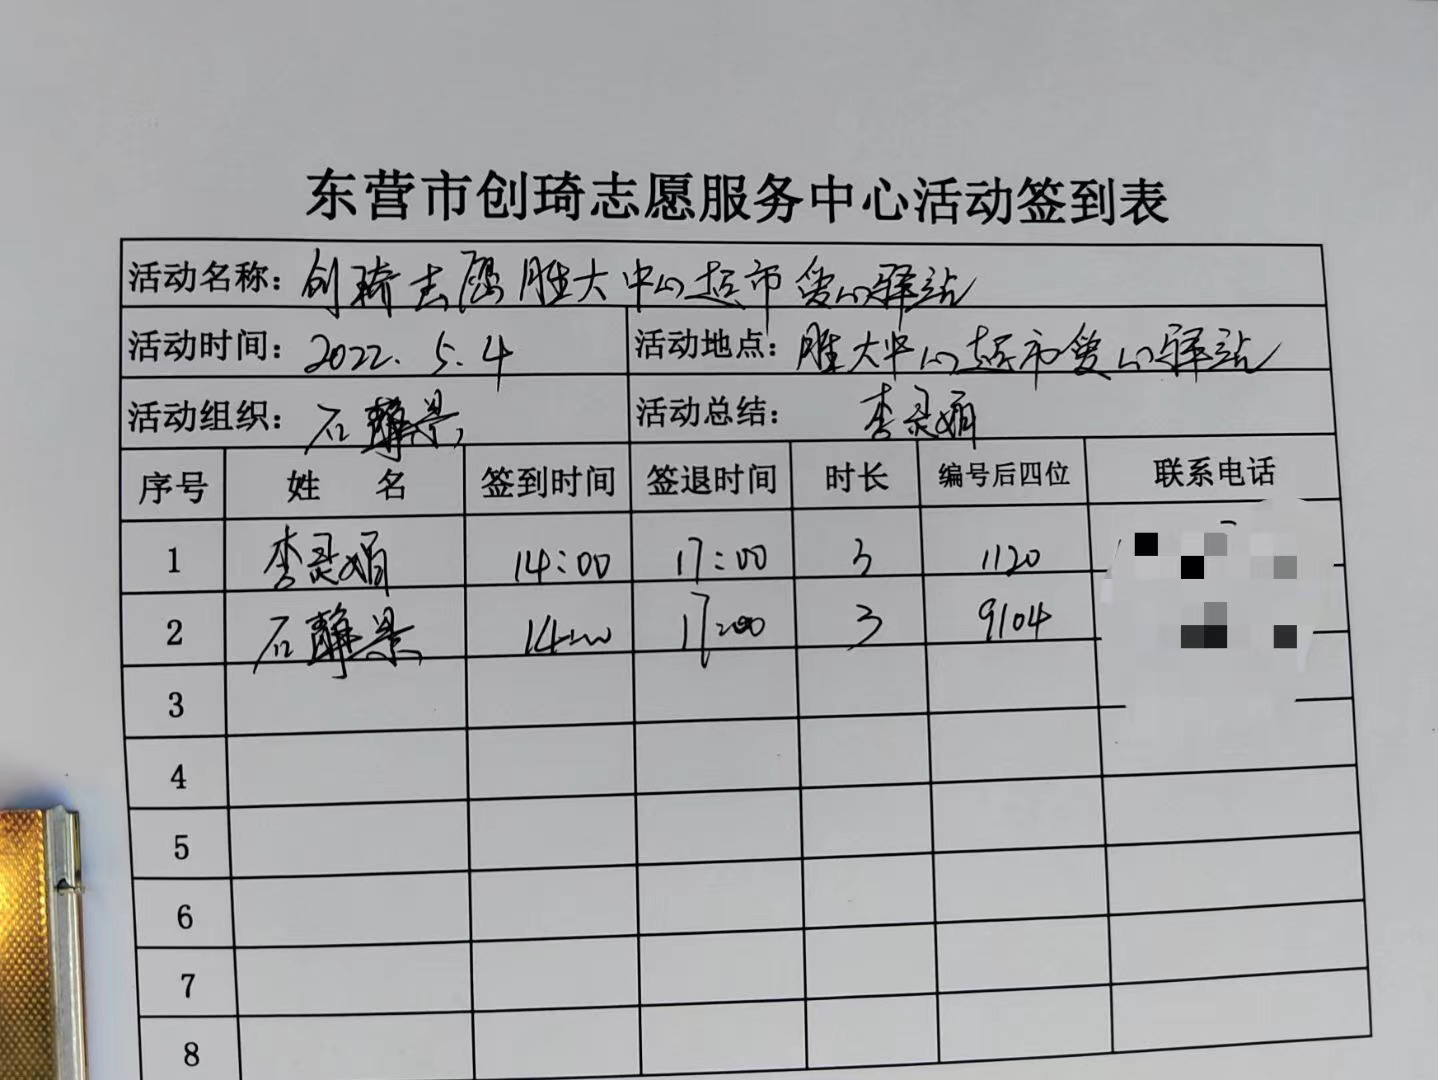 东营市创琦志愿服务中心活动签到表
活动名称：创琦志愿胜大中心超市爱心驿站
活动时间：2022.5.4 活动地点：胜大中心超市爱心驿站
活动组织：石静 活动总结：李灵娟
序号 姓名 签到时间 签退时间 时长 编号后四位 联系电话
1 李灵娟 14:00 17:00 3 1120
2 石静 14:00 17:00 3 9104
3
4
5
6
7
8